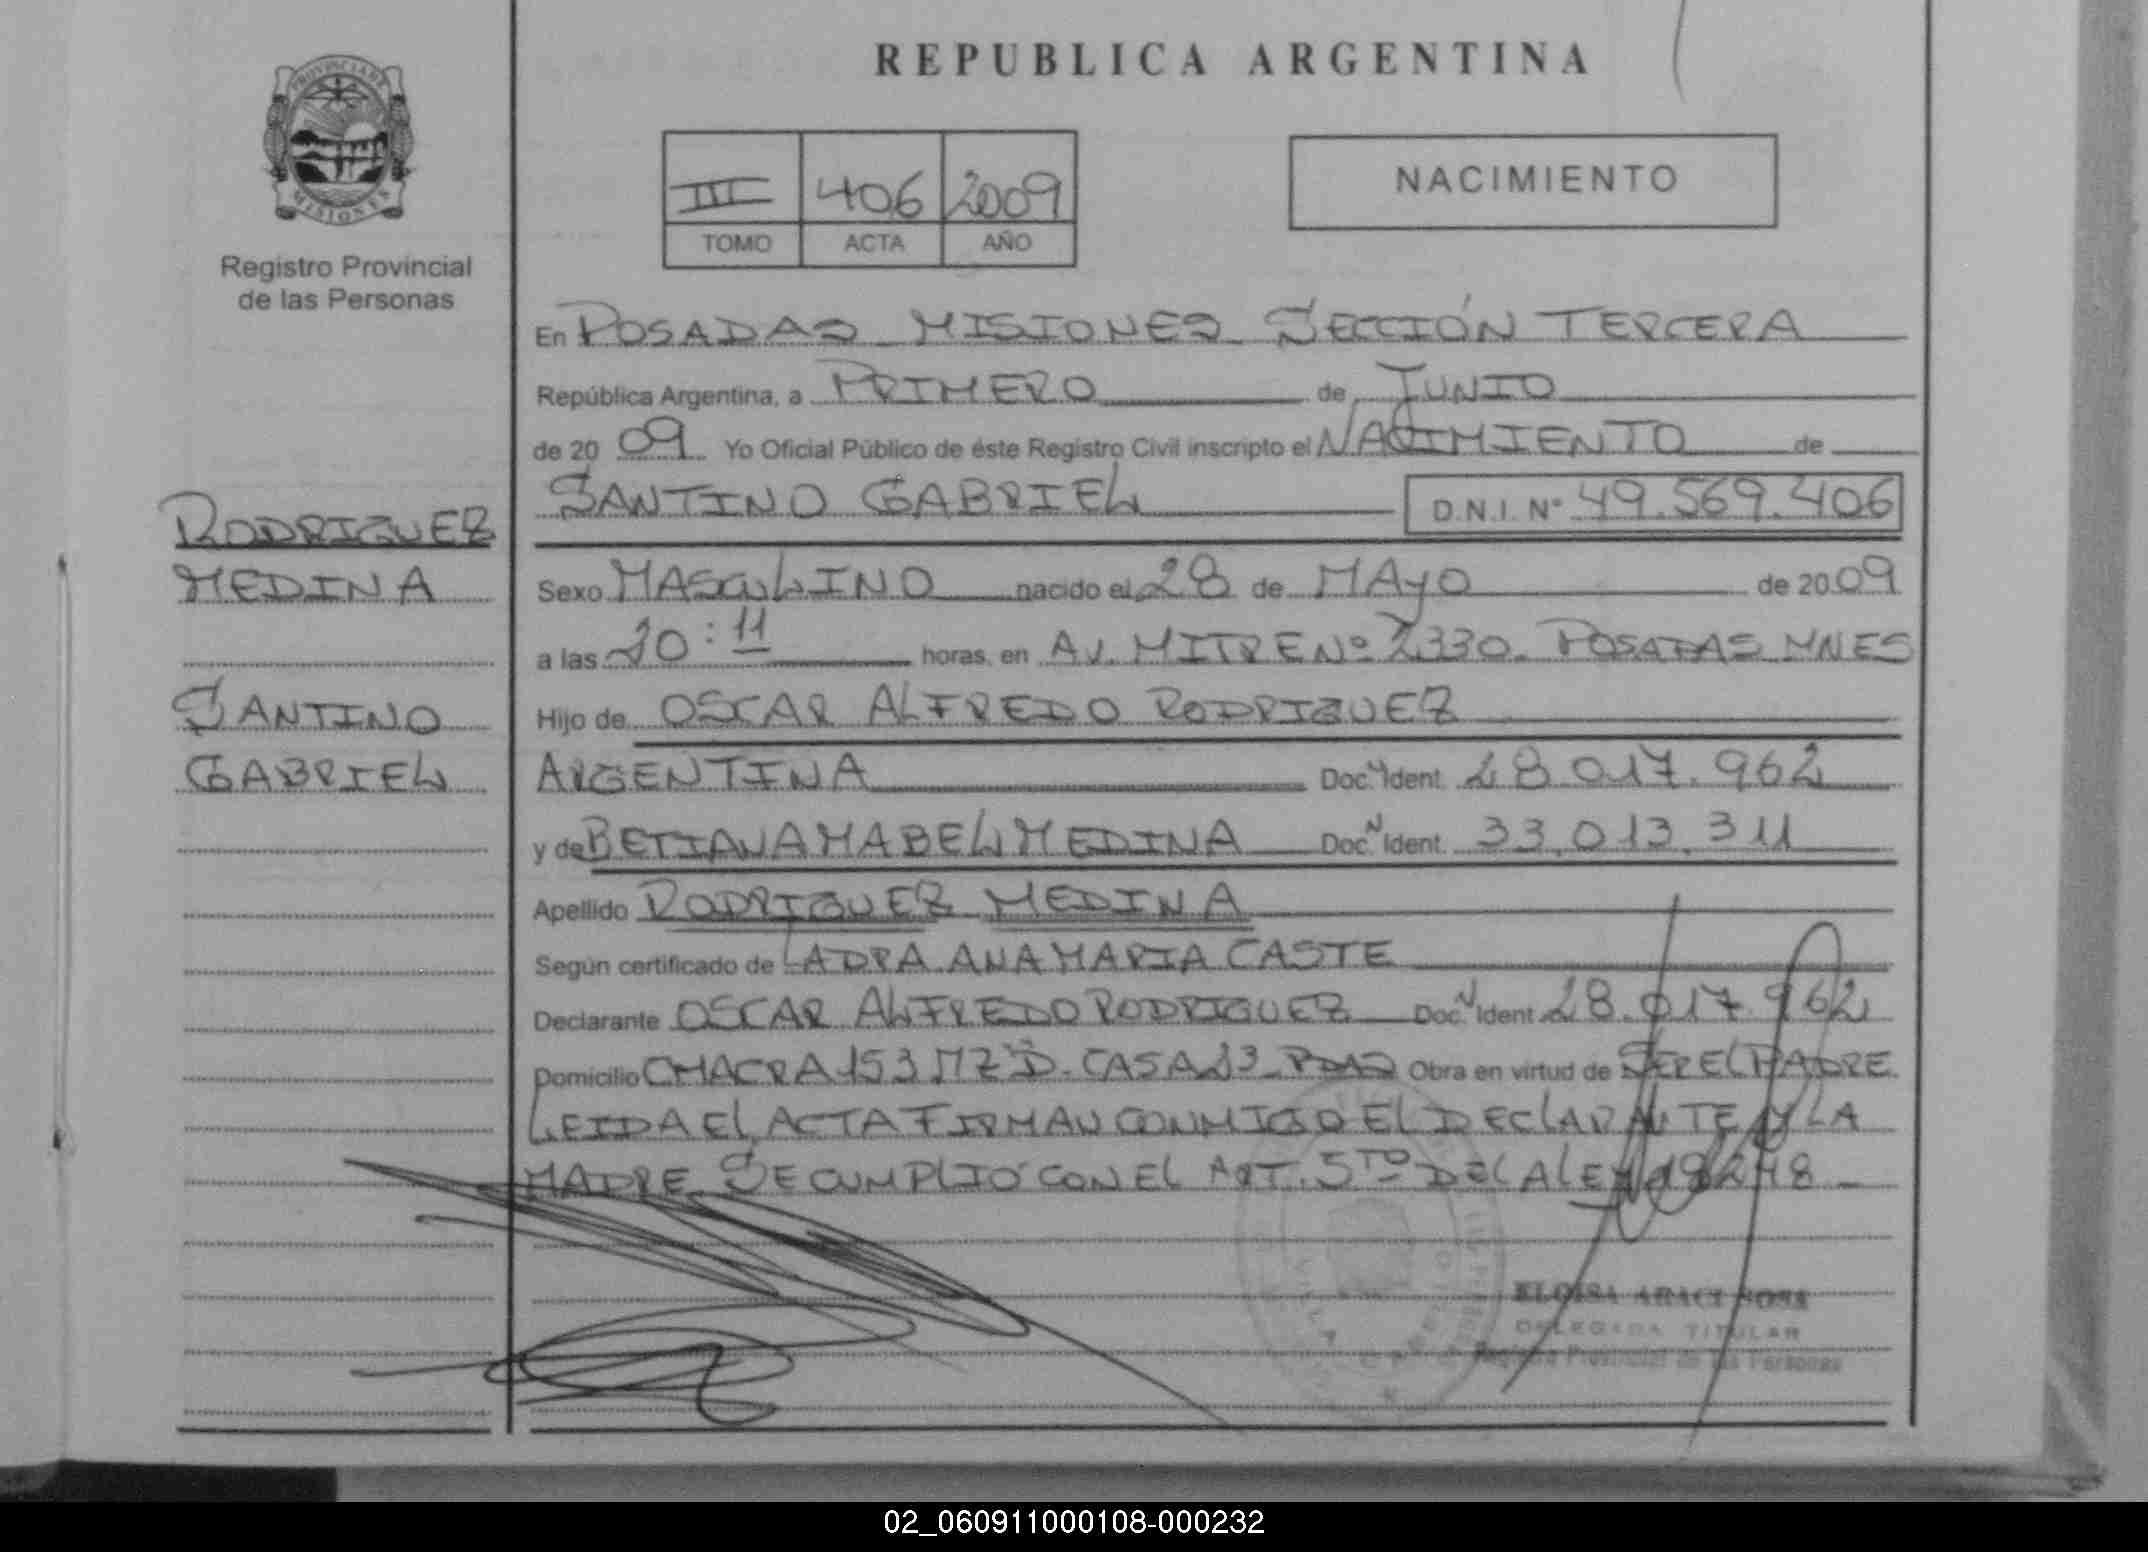 REPUBLICA ARGENTINA
PROVINCIA DE
MISIONES
Registro Provincial
de las Personas
III 406 2009
TOMO ACTA AÑO
NACIMIENTO
En POSADAS MISIONES SECCIÓN TERCERA
República Argentina, a PRIMERO de JUNIO
de 20 09 Yo Oficial Público de éste Registro Civil inscripto el NACIMIENTO de
SANTINO GABRIEL D.N.I. Nº 49.569.406
RODRIGUEZ
MEDINA
SANTINO
GABRIEL
Sexo MASCULINO nacido el 28 de MAYO de 20 09
a las 20:11 horas, en AV. MITRE Nº 2330. POSADAS MNES
Hijo de OSCAR ALFREDO RODRIGUEZ
ARGENTINA Doc. N Ident. 28.017.962
y de BETIANA MABEL MEDINA Doc. N Ident. 33.013.311
Apellido RODRIGUEZ MEDINA
Según certificado de LA DRA ANA MARIA CASTE
Declarante OSCAR ALFREDO RODRIGUEZ Doc. N Ident. 28.017.962
Domicilio CHACRA 153 MZ D. CASA 23 PDAS Obra en virtud de SER EL PADRE.
LEIDA EL ACTA FIRMAN CONMIGO EL DECLARANTE Y LA
MADRE SE CUMPLIO CON EL ART. 5TO DE LA LEY 18248
ELOISA ARACI SOSA
DELEGADA TITULAR
Registro Provincial de las Personas
02_060911000108-000232